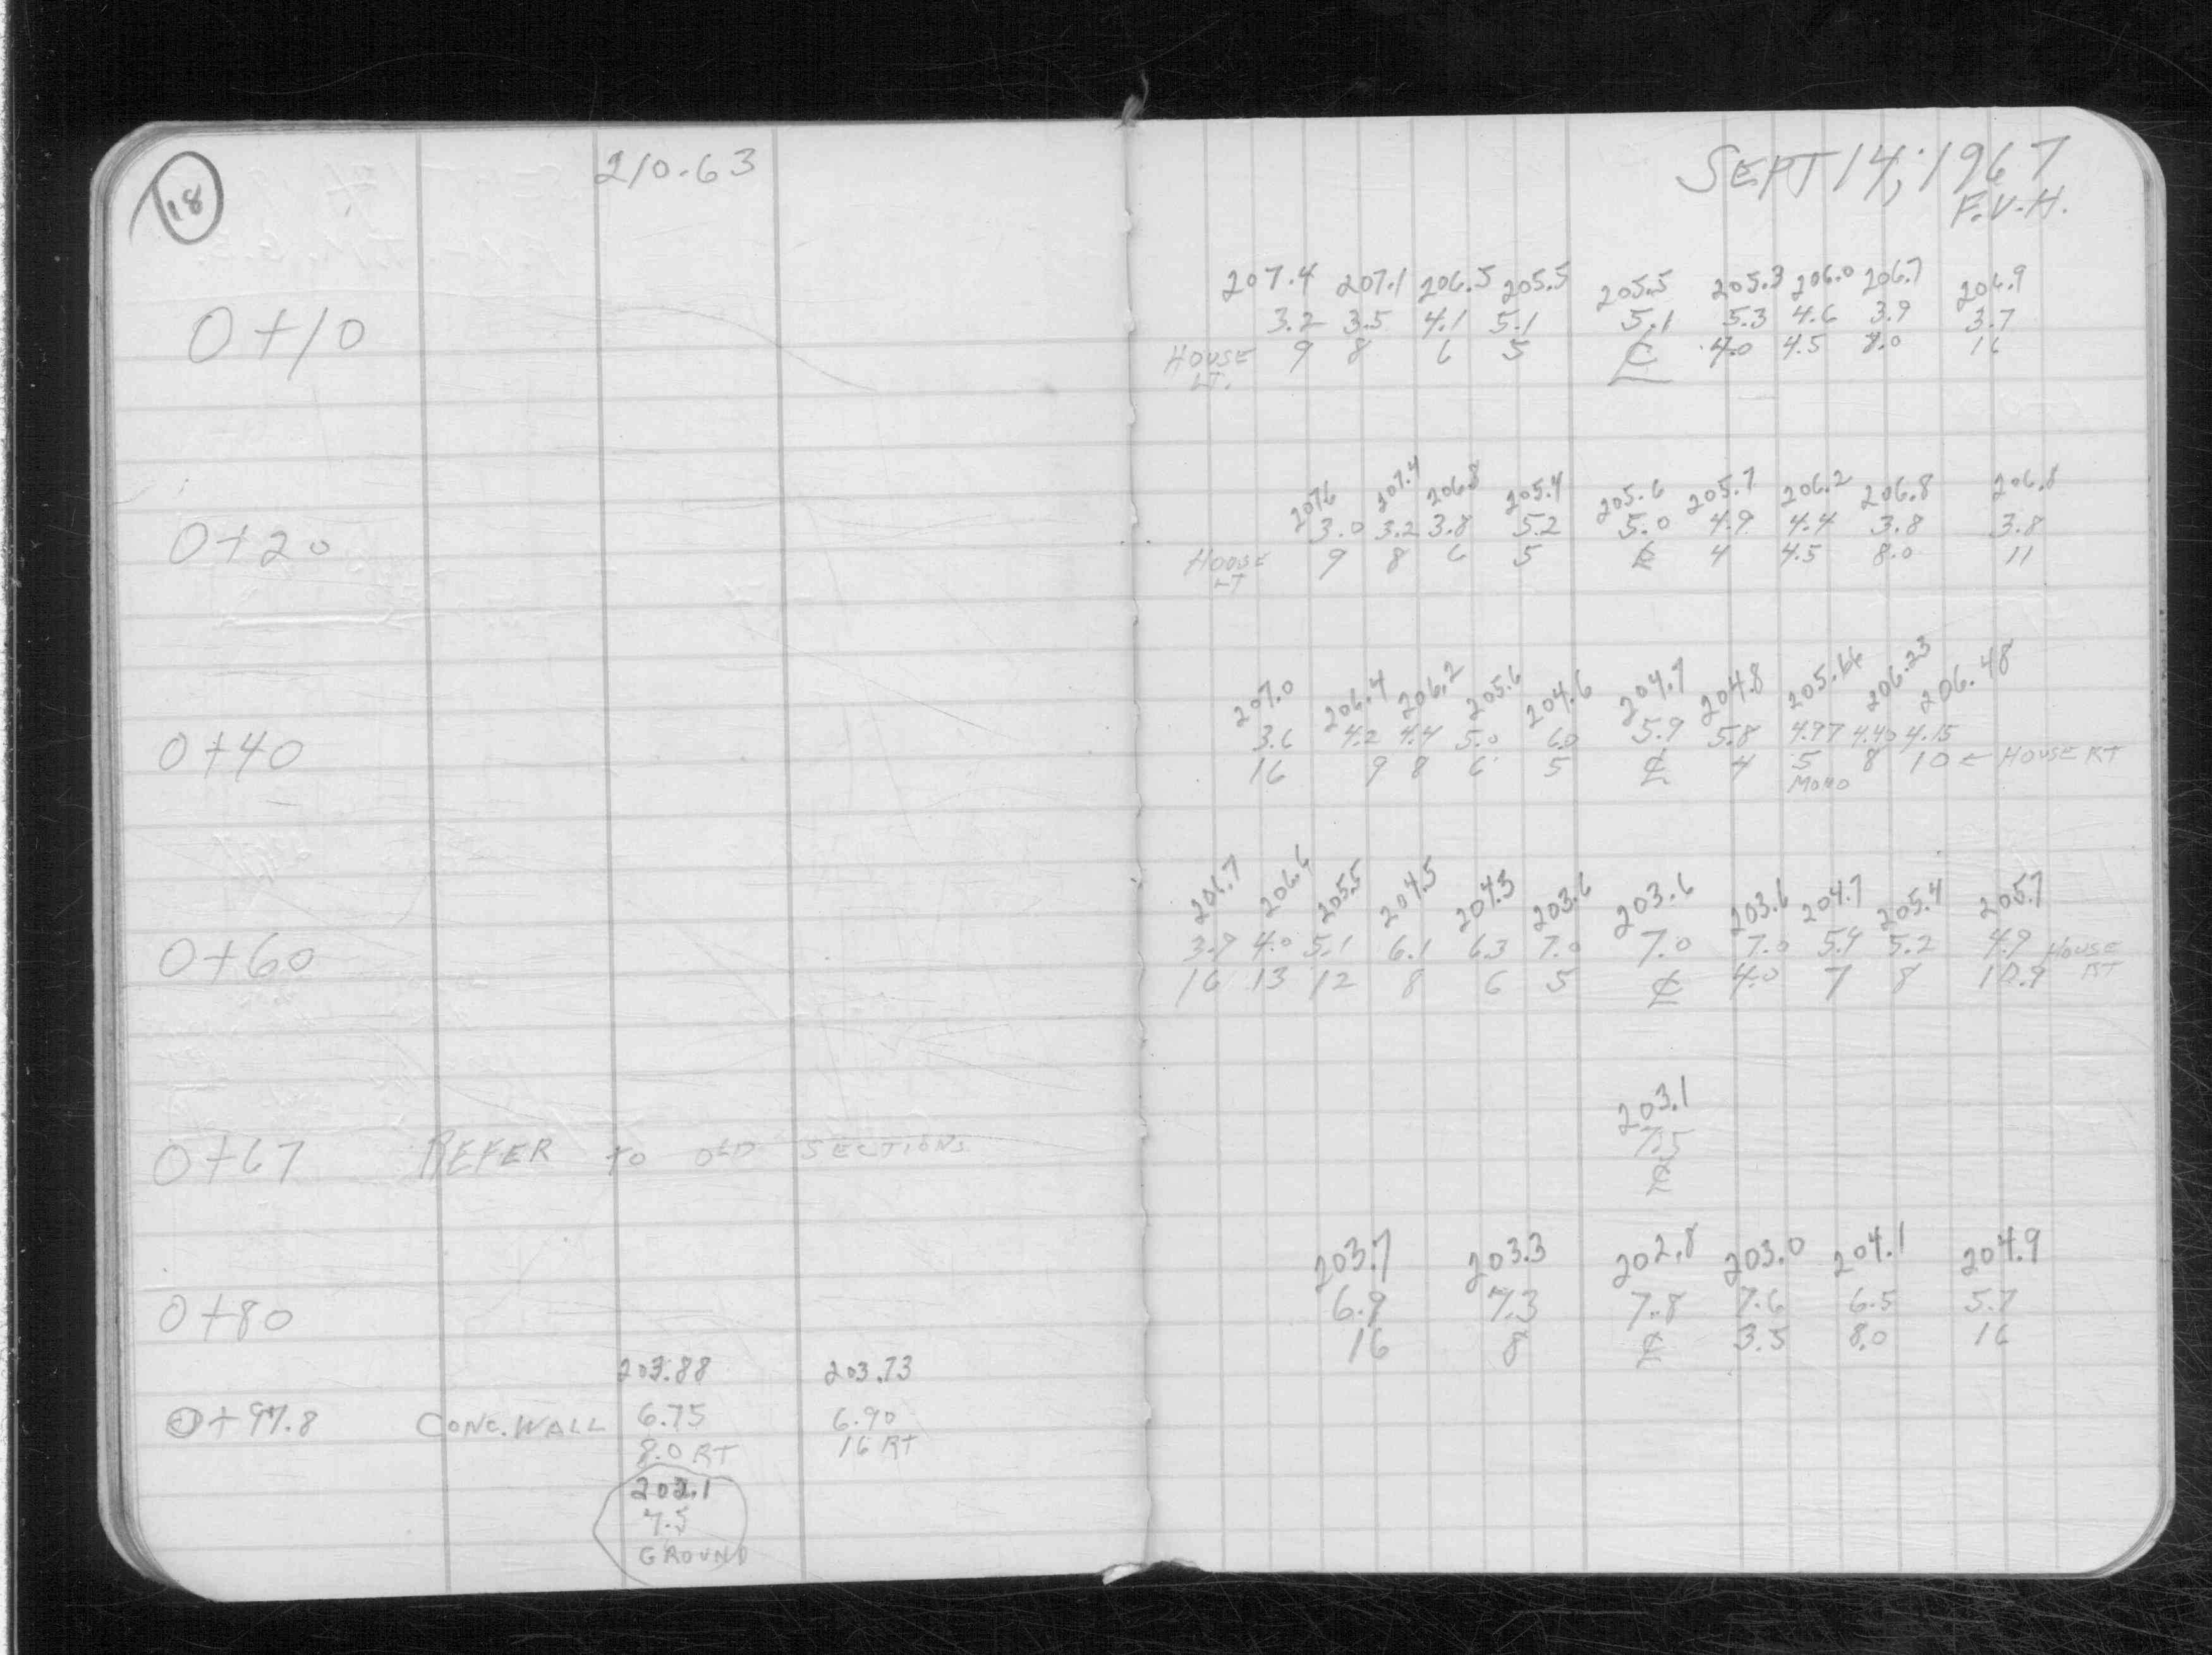 18
210.63
SEPT 14, 1967
F.V.H.
207.4 207.1 206.5 205.5 205.5 205.3 206.0 206.7 206.9
0+10 3.2 3.5 4.1 5.1 5.1 5.3 4.6 3.9 3.7
HOUSE 9 8 6 5 ℄ 4.0 4.5 8.0 16
LT.
207.6 207.4 206.8 205.4 205.6 205.7 206.2 206.8 206.8
0+20 3.0 3.2 3.8 5.2 5.0 4.9 4.4 3.8 3.8
HOUSE 9 8 6 5 ℄ 4 4.5 8.0 11
LT
207.0 206.4 206.2 205.6 204.6 204.7 204.8 205.66 206.23 206.48
0+40 3.6 4.2 4.4 5.0 6.0 5.9 5.8 4.97 4.40 4.15
16 9 8 6 5 ℄ 4 5 8 10 ← HOUSE RT
MONO
206.7 206.6 205.5 204.5 204.3 203.6 203.6 203.6 204.7 205.4 205.7
0+60 3.9 4.0 5.1 6.1 6.3 7.0 7.0 7.0 5.9 5.2 4.9 HOUSE
16 13 12 8 6 5 ℄ 4.0 7 8 10.9 RT
203.1
0+67 REFER TO OLD SECTIONS 7.5
℄
203.7 203.3 202.8 203.0 204.1 204.9
0+80 6.9 7.3 7.8 7.6 6.5 5.7
16 8 ℄ 3.5 8.0 16
203.88 203.73
0+97.8 CONC. WALL 6.75 6.90
8.0 RT 16 RT
203.1
7.5
GROUND